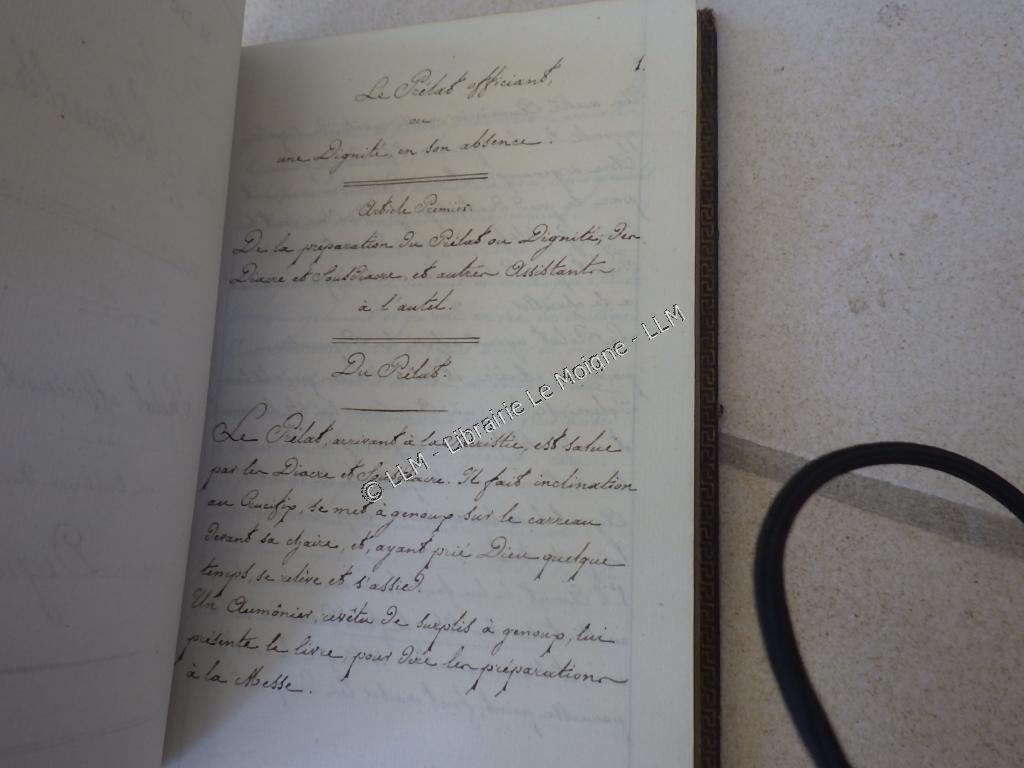 1.
Le Prélat officiant,
ou
une Dignité, en son absence.
Article Premier.
De la préparation du Prélat ou Dignité, des
Diacre et Sousdiacre, et autres Assistants
à l'autel.
Du Prélat.
Le Prélat, arrivant à la Sacristie, est salué
par les Diacre et Sousdiacre. Il fait inclination
au Crucifix, se met à genoux sur le carreau
devant sa chaire, et, ayant prié Dieu quelque
temps, se relève et s'assied.
Un Aumônier, revêtu de surplis à genoux, lui
présente le livre, pour dire les préparations
à la Messe.
© LLM - Librairie Le Moigne - LLM